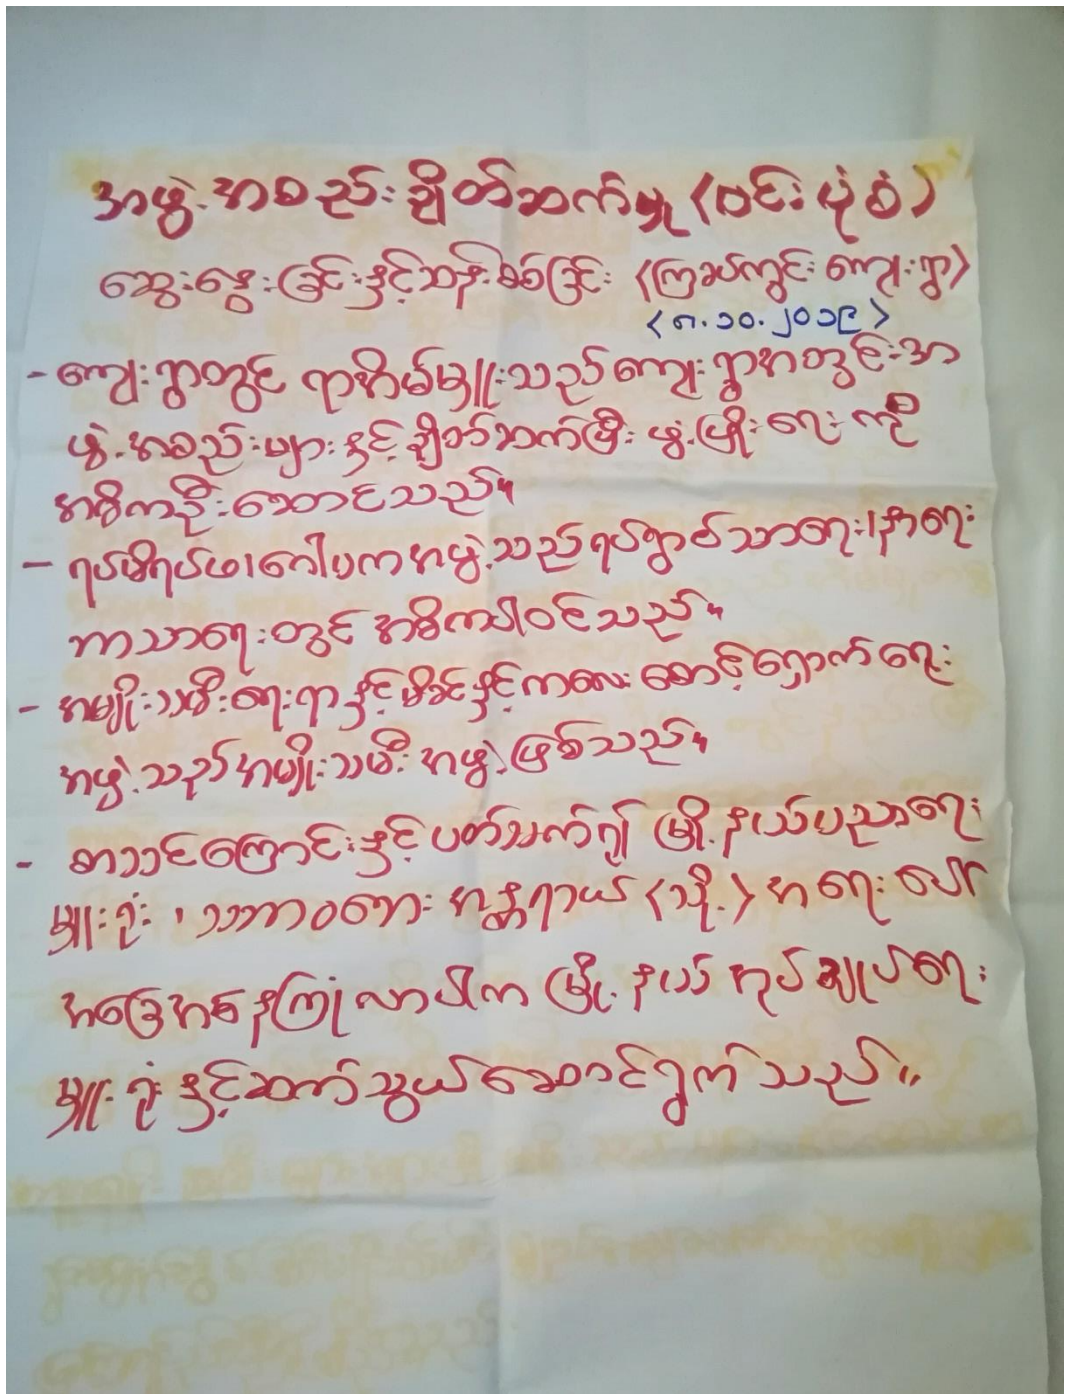 အဖွဲ့အစည်းချိတ်ဆက်မှု (ဝင်းပုံစံ)
ဆွေးနွေးခြင်းနှင့်သန်းစစ်ခြင်း (ကြခတ်ကွင်းကျေးရွာ)
(၈.၁၀.၂၀၁၉)
- ကျေးရွာတွင် ရာအိမ်မှူးသည်ကျေးရွာအတွင်းအ
ဖွဲ့အစည်းများနှင့်ချိတ်ဆက်ပြီးဖွံ့ဖြိုးရေးကို
အဓိကဦးဆောင်သည်။
- ရပ်မိရပ်ဖ၊ဂေါပကအဖွဲ့သည်ရပ်ရွာဝ်သာရေး၊နာရေး
ဘာသာရေးတွင် အဓိကပါဝင်သည်။
- အမျိုးသမီးရေးရာနှင့်မိခင်နှင့်ကလေးစောင့်ရှောက်ရေး
အဖွဲ့သည်အမျိုးသမီးအဖွဲ့ဖြစ်သည်။
- စာသင်ကြောင်းနှင့်ပတ်သက်၍ မြို့နယ်ပညာရေး
မှူးရုံး၊ သဘာဝဘေးအန္တရာယ် (သို့) အရေးပေါ်
အခြေအနေကြုံလာပါက မြို့နယ်အုပ်ချုပ်ရေး
မှူးရုံးနှင့်ဆက်သွယ်ဆောင်ရွက်သည်။